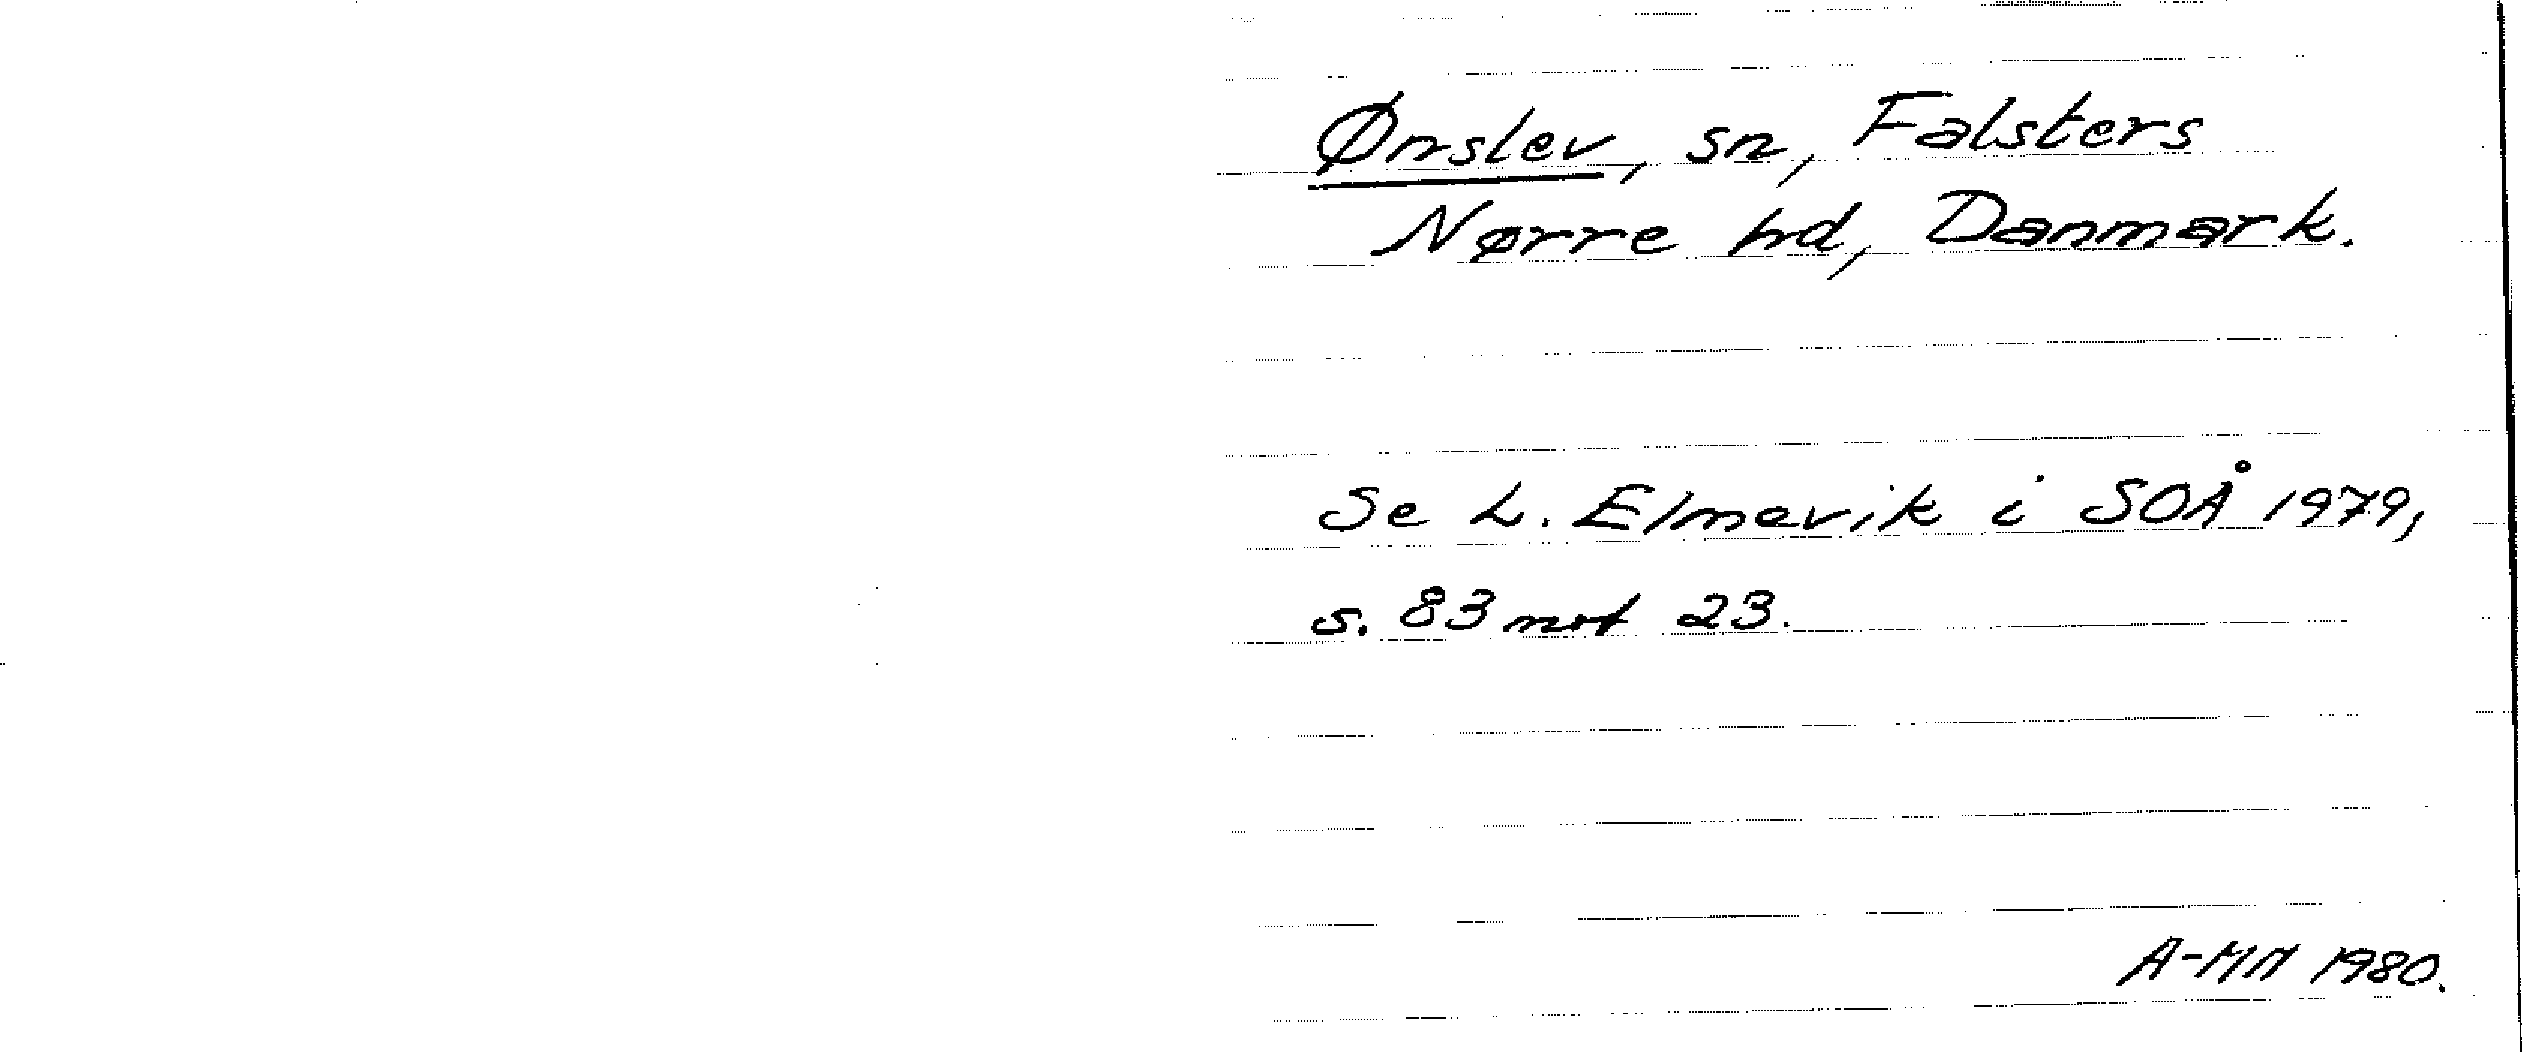 Ørslev, sn, Falsters
Nørre hd, Danmark.
Se L. Elmevik i SOÅ 1979,
s. 83 not 23.
A-MN 1980.